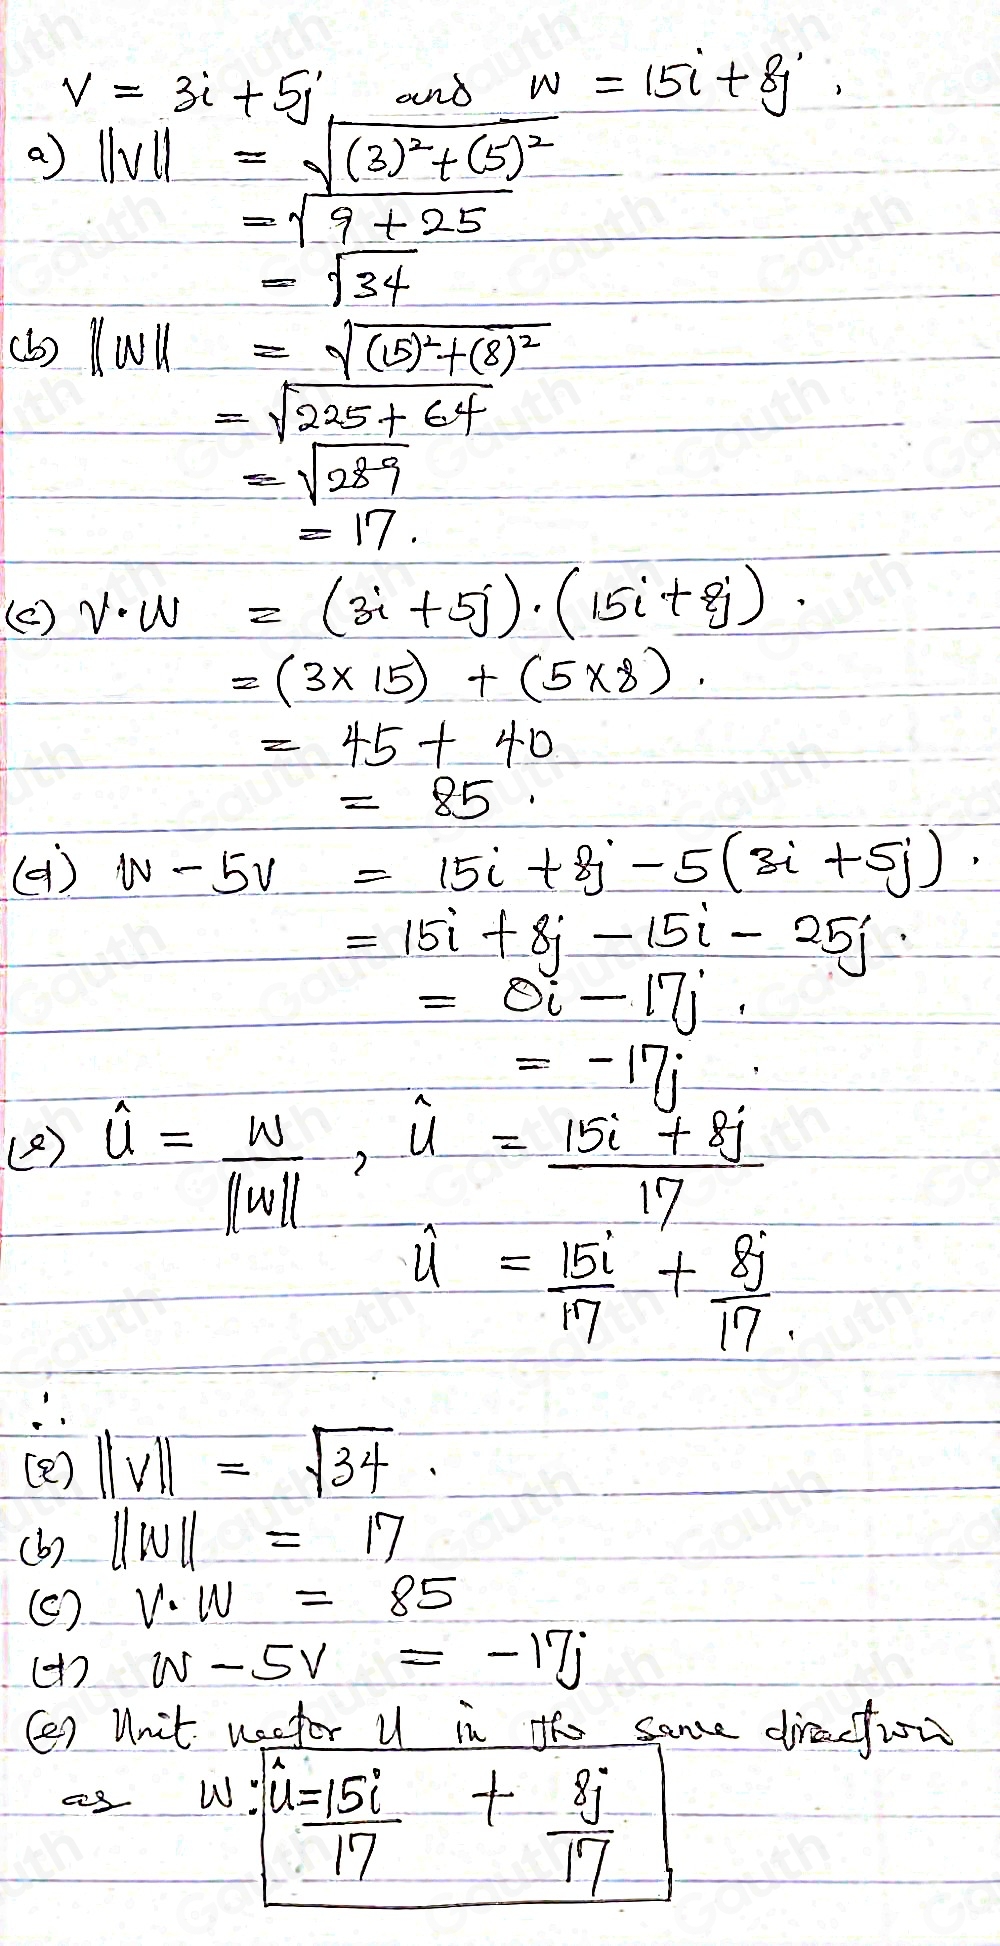 V = 3i + 5j and W = 15i + 8j.
a) ||V|| = √((3)² + (5)²)
= √(9 + 25)
= √34
(b) ||W|| = √((15)² + (8)²)
= √(225 + 64)
= √289
= 17.
(c) V·W = (3i + 5j)·(15i + 8j).
= (3 × 15) + (5 × 8).
= 45 + 40
= 85.
(d) W - 5V = 15i + 8j - 5(3i + 5j).
= 15i + 8j - 15i - 25j.
= 0i - 17j.
= -17j.
(e) û = W/||W||, û = (15i + 8j)/17
û = 15i/17 + 8j/17.
∴
(a) ||V|| = √34.
(b) ||W|| = 17
(c) V·W = 85
(d) W - 5V = -17j
(e) Unit vector U in the same direction
as W: û = 15i/17 + 8j/17